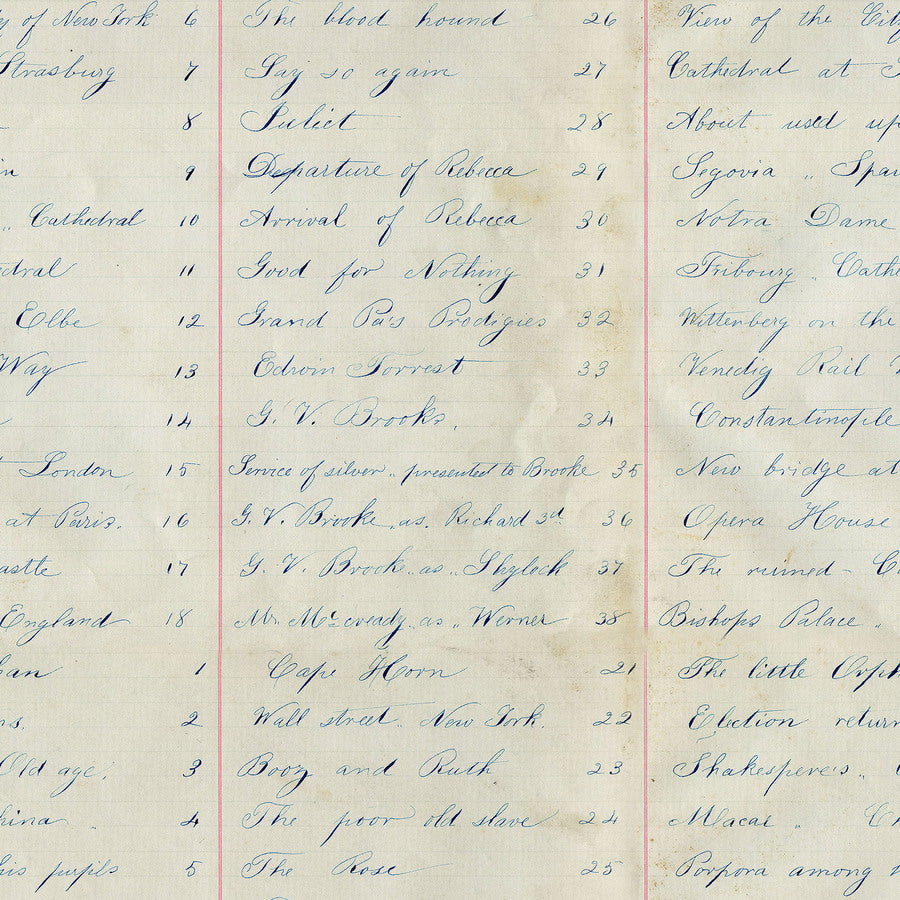 y of New York 6
Strasburg 7
8
n 9
„ Cathedral 10
edral 11
Elbe 12
Way 13
14
London 15
at Paris. 16
astle 17
England 18
an 1
ns. 2
Old age. 3
hina „ 4
his pupils 5
The blood hound 26
Say so again 27
Juliet 28
Departure of Rebecca 29
Arrival of Rebecca 30
Good for Nothing 31
Grand Pa's Prodigies 32
Edwin Forrest 33
G. V. Brooks. 34
Service of silver „ presented to Brooke 35
G. V. Brooke „ as. Richard 3d. 36
G. V. Brook „ as „ Shylock 37
Mr. McCready „ as „ Werner 38
Cape Horn 21
Wall street „ New York 22
Booz and Ruth 23
The poor old slave 24
The Rose 25
View of the City
Cathedral at
About used up
Segovia „ Spa
Notra Dame
Fribourg „ Cathe
Wittenberg on the
Venedig Rail
Constantinople
New bridge at
Opera House
The ruined - C
Bishops Palace „
The little Orph
Election return
Shakespere's „
Macai „ Ch
Porpora among h